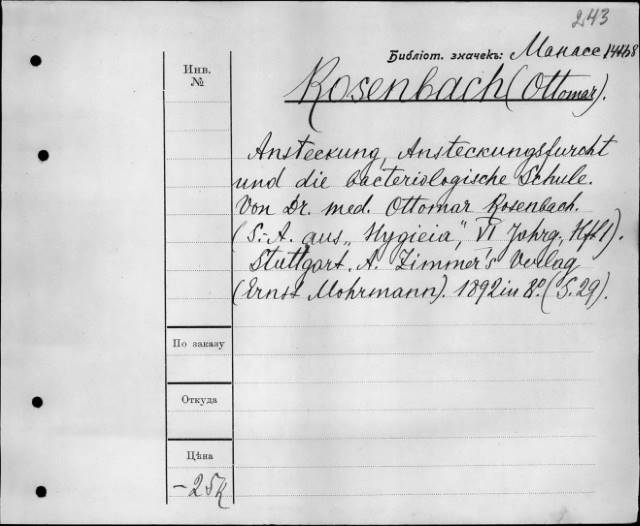 243
Библіот. значекъ: Манассе 14468
Инв.
№
Rosenbach (Ottomar).
Ansteckung, Ansteckungsfurcht
und die bacteriologische Schule.
Von Dr. med. Ottomar Rosenbach.
(S.-A. aus „Hygieia“, VI Jahrg., Hft 1).
Stuttgart. A. Zimmer's Verlag
(Ernst Mohrmann). 1892 in 8º (S. 29).
По заказу
Откуда
Цѣна
– 25k